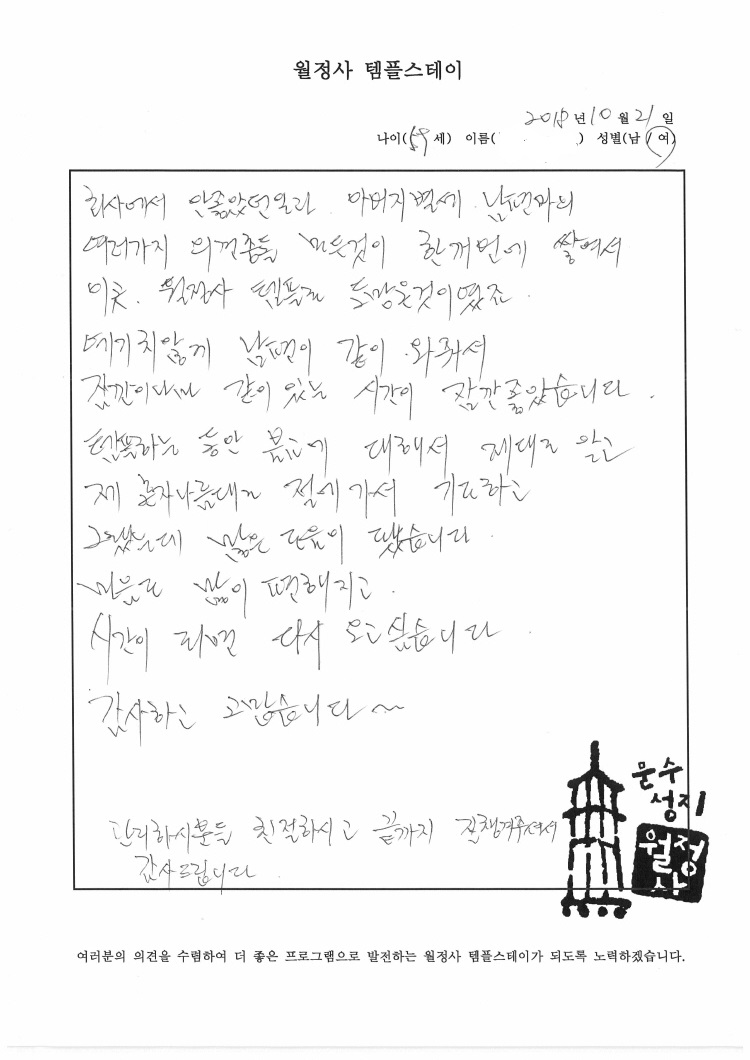 월정사 템플스테이
2018년 10월 21일
나이(59세) 이름( ) 성별(남/여)
회사에서 안좋았던일과 아버지별세 남편과의
여러가지 의견충돌 모든것이 한꺼번에 쌓여서
이곳. 월정사 템플로 도망온것이였죠.
예기치않게 남편이 같이 와줘서
잠깐이나마 같이 있는 시간이 잠깐좋았습니다.
템플하는 동안 불교에 대해서 제대로 알고
제 혼자나름대로 절에가서 기도하고
그랬는데 많은 도움이 됐습니다.
마음도 많이 편해지고.
시간이 되면 다시 오고싶습니다.
감사하고 고맙습니다~
관리하시분들 친절하시고 끝까지 잘챙겨주셔서
감사드립니다.
문수
성지
월정
사
여러분의 의견을 수렴하여 더 좋은 프로그램으로 발전하는 월정사 템플스테이가 되도록 노력하겠습니다.